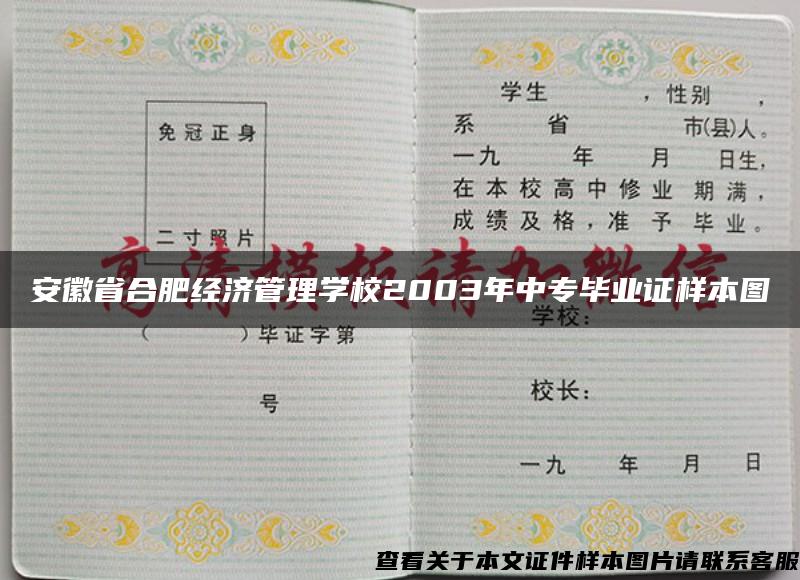 免冠正身
二寸照片
（ ）毕证字第
号
学生 ，性别 ，
系 省 市(县)人。
一九 年 月 日生，
在本校高中修业 期满，
成绩及格，准 予 毕业。
高清模板请加微信
安徽省合肥经济管理学校2003年中专毕业证样本图
学校：
校长：
一九 年 月 日
查看关于本文证件样本图片请联系客服